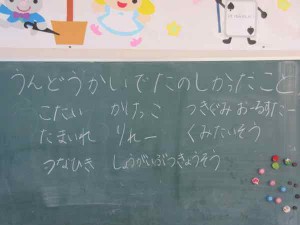 うんどうかいでたのしかったこと
こたい かけっこ つきぐみ おーるすたー
たまいれ りれー くみたいそう
つなひき しょうがいぶつきょうそう